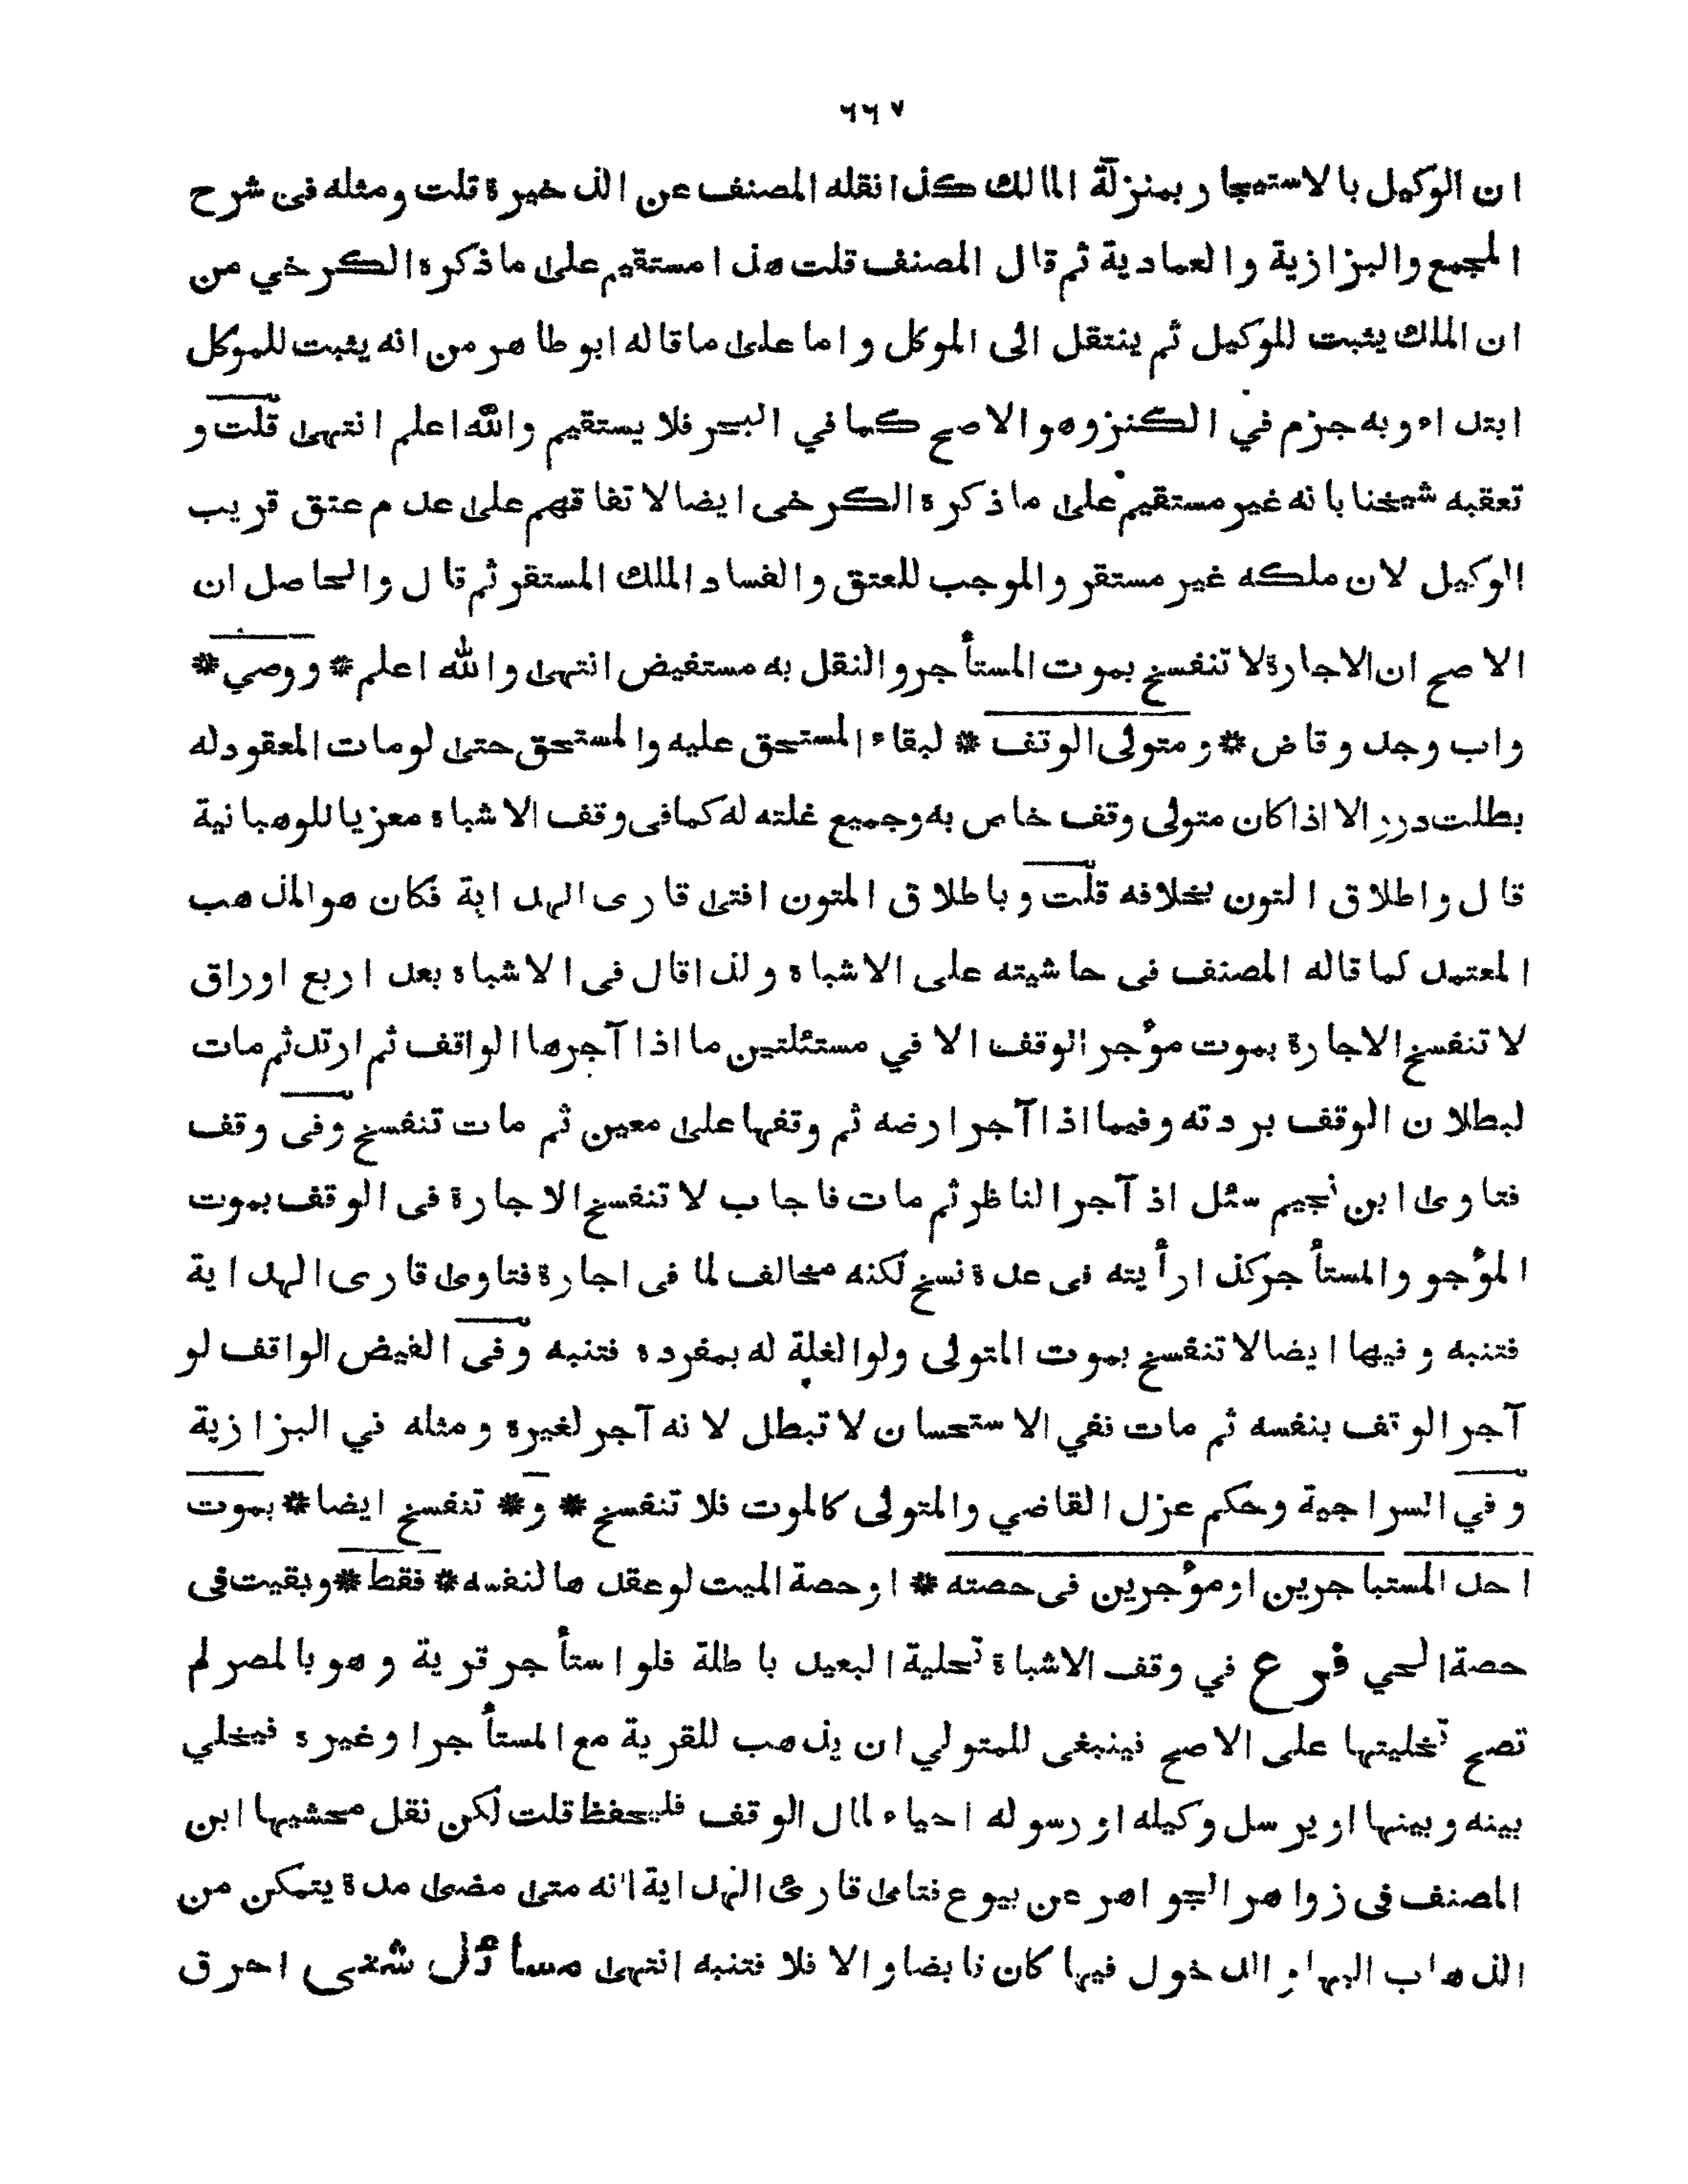 ٦٦٧
ان الوكيل بالاستيجار بمنزلة المالك كذا نقله المصنف عن الذخيرة قلت ومثله فى شرح
المجمع والبزازية والعمادية ثم قال المصنف قلت هذا مستقيم على ما ذكره الكرخي من
ان الملك يثبت للوكيل ثم ينتقل الى الموكل واما على ما قاله ابو طاهر من انه يثبت للموكل
ابتداء وبه جزم في الكنز وهو الاصح كما في البحر فلا يستقيم والله اعلم انتهى قلت و
تعقبه شيخنا بانه غير مستقيم على ما ذكره الكرخى ايضا لاتفاقهم على عدم عتق قريب
الوكيل لان ملكه غير مستقر والموجب للعتق والفساد الملك المستقر ثم قال والحاصل ان
الاصح ان الاجارة لا تنفسخ بموت المستأجر والنقل به مستفيض انتهى والله اعلم * ووصي *
واب وجد وقاض * ومتولى الوتف * لبقاء المستحق عليه والمستحق حتى لو مات المعقود له
بطلت درر الا اذا كان متولى وقف خاص به وجميع غلته له كما فى وقف الاشباه معزيا للوهبانية
قال واطلاق التون بخلافه قلت وباطلاق المتون افتى قارى الهداية فكان هو المذهب
المعتمد كما قاله المصنف فى حاشيته على الاشباه ولذا قال فى الاشباه بعد اربع اوراق
لا تنفسخ الاجارة بموت مؤجر الوقف الا في مستئلتين ما اذا آجرها الواقف ثم ارتد ثم مات
لبطلان الوقف بردته وفيما اذا آجر ارضه ثم وتفها على معين ثم مات تنفسخ وفى وقف
فتاوى ابن نجيم سئل اذ آجر الناظر ثم مات فاجاب لا تنفسخ الاجارة فى الوقف بموت
المؤجو والمستأجر كذا رأيته فى عدة نسخ لكنه مخالف لما فى اجارة فتاوى قارى الهداية
فتنبه وفيها ايضا لا تنفسخ بموت المتولى ولو الغلة له بمفرده فتنبه وفى الفيض الواقف لو
آجر الوتف بنفسه ثم مات نفي الاستحسان لا تبطل لانه آجر لغيره ومثله في البزازية
وفي السراجية وحكم عزل القاضي والمتولى كالموت فلا تنفسخ * و * تنفسخ ايضا * بموت
احد المستباجرين او مؤجرين فى حصته * او حصة الميت لو عقدها لنفسه * فقط * وبقيت فى
حصة الحي فرع في وقف الاشباه تحلية البعيد باطلة فلو استأجر قرية وهو بالمصر لم
تصح تخليتها على الاصح فينبغى للمتولي ان يذهب للقرية مع المستأجر او غيره فيخلي
بينه وبينها او يرسل وكيله او رسوله احياء لمال الوقف فليحفظ قلت لكن نقل محشيها ابن
المصنف فى زواهر الجواهر عن بيوع فتاوى قارئ الهداية انه متى مضى مدة يتمكن من
الذهاب اليها والدخول فيها كان نابضا والا فلا فتنبه انتهى مسائل شتى احرق